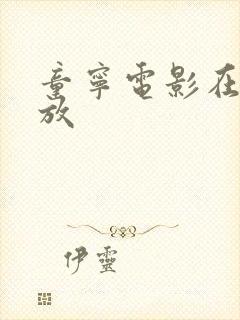 童寧電影在
放
伊靈